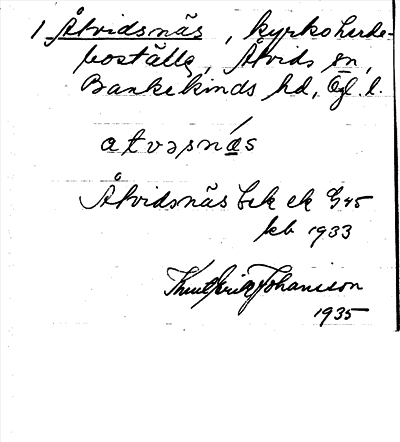 1 Åtvidsnäs, kyrkoherde-
boställe, Åtvids sn,
Bankekinds hd, Ögl. l.
atvəsnás
Åtvidsnäs bck ek G 45
kb 1933
Knut Erik Johansson
1935